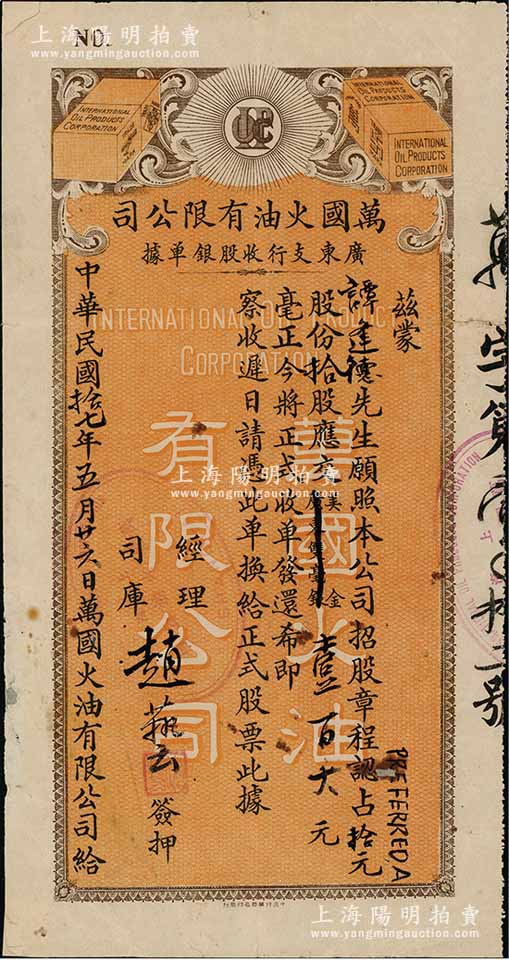 上海陽明拍賣
www.yangmingauction.com
NO.
INTERNATIONAL
OIL PRODUCTS
CORPORATION
INTERNATIONAL
OIL PRODUCTS
CORPORATION
INTERNATIONAL
OIL PRODUCTS
CORPORATION
司公限有油火國萬
據單銀股收行支東廣
INTERNATIONAL OIL PRODUCT
CORPORATION
萬國火油
有限公司
茲蒙
達德先生願照本公司招股章程認占拾元
PREFERRED A
股份拾股應交 金壹百大元
毫正今將正式收單發還希即
察收遲日請憑此單換給正式股票此據
經理
司庫
趙 云 簽押
中華民國拾七年五月廿六日萬國火油有限公司給
萬字第 號
上海陽明拍賣
www.yangmingauction.com
上海陽明拍賣
www.yangmingauction.com